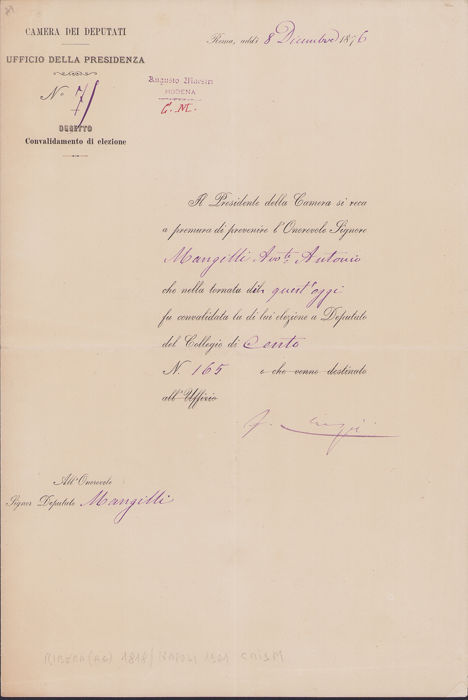 CAMERA DEI DEPUTATI
UFFICIO DELLA PRESIDENZA
N.º 7
OGGETTO
Convalidamento di elezione
Roma, addì 8 Dicembre 1876
Augusto Maestri
MODENA
C. M.
Il Presidente della Camera si reca
a premura di prevenire l'Onorevole Signore
Mangilli Avv.to Antonio
che nella tornata di quest'oggi
fu convalidata la di lui elezione a Deputato
del Collegio di Cento
N. 165 e che venne destinato
all'Ufficio
F. Crispi
All'Onorevole
Signor Deputato Mangilli
RIBERA (AG) 1818 / NAPOLI 1901